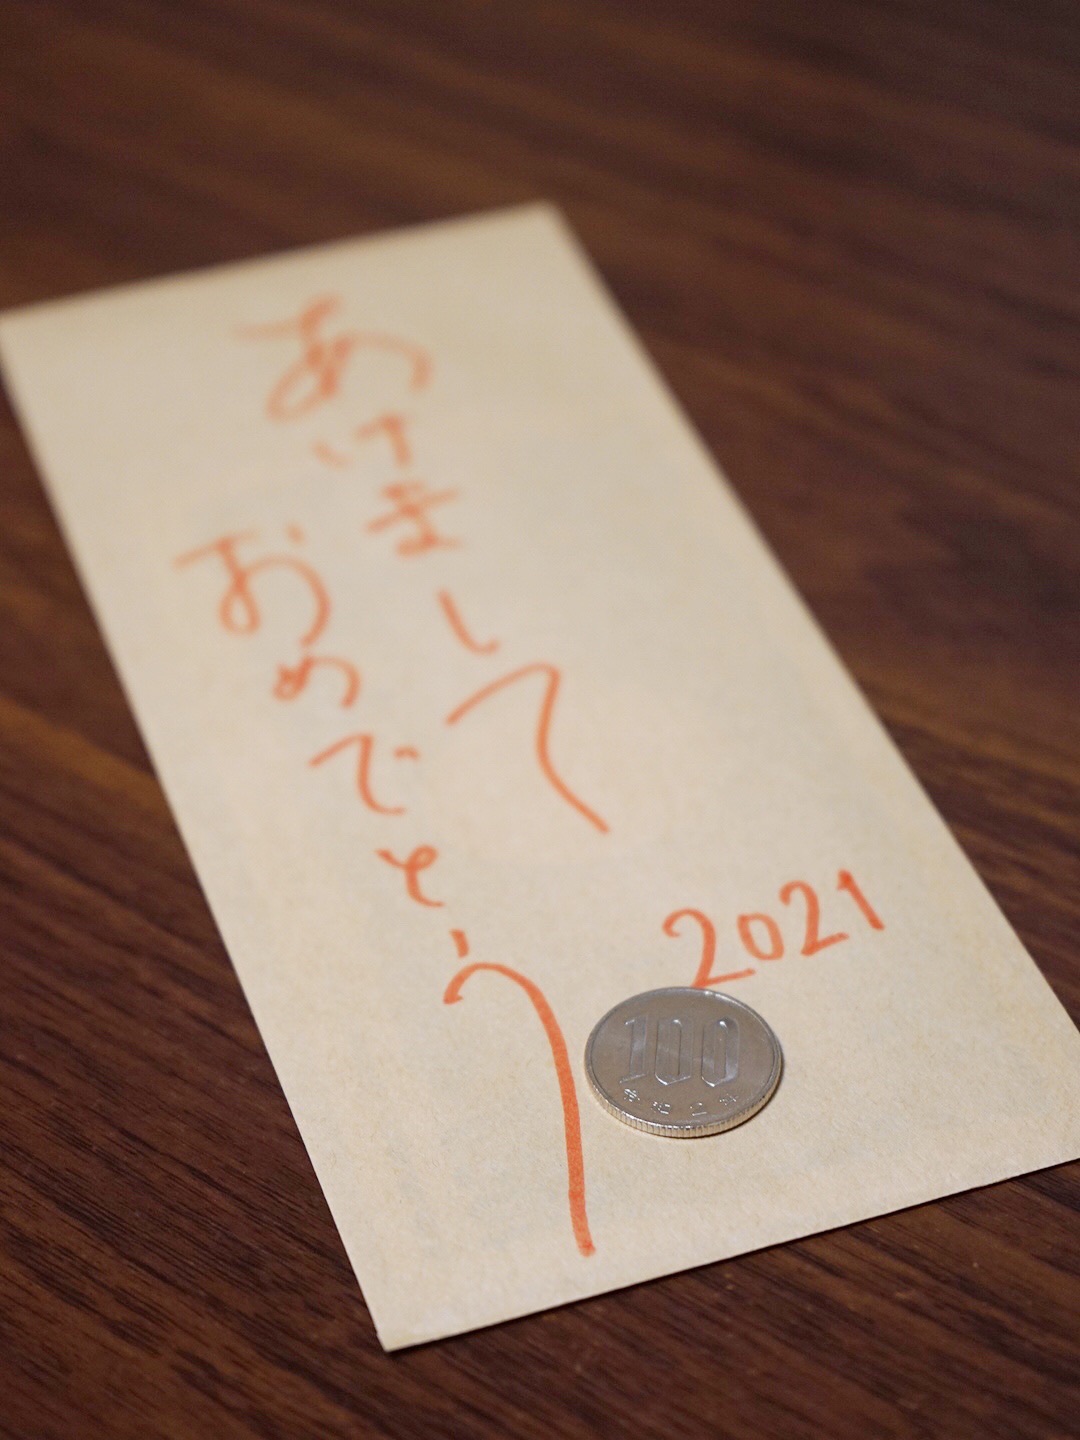 あけまして
おめでとう
2021
100
令和2年